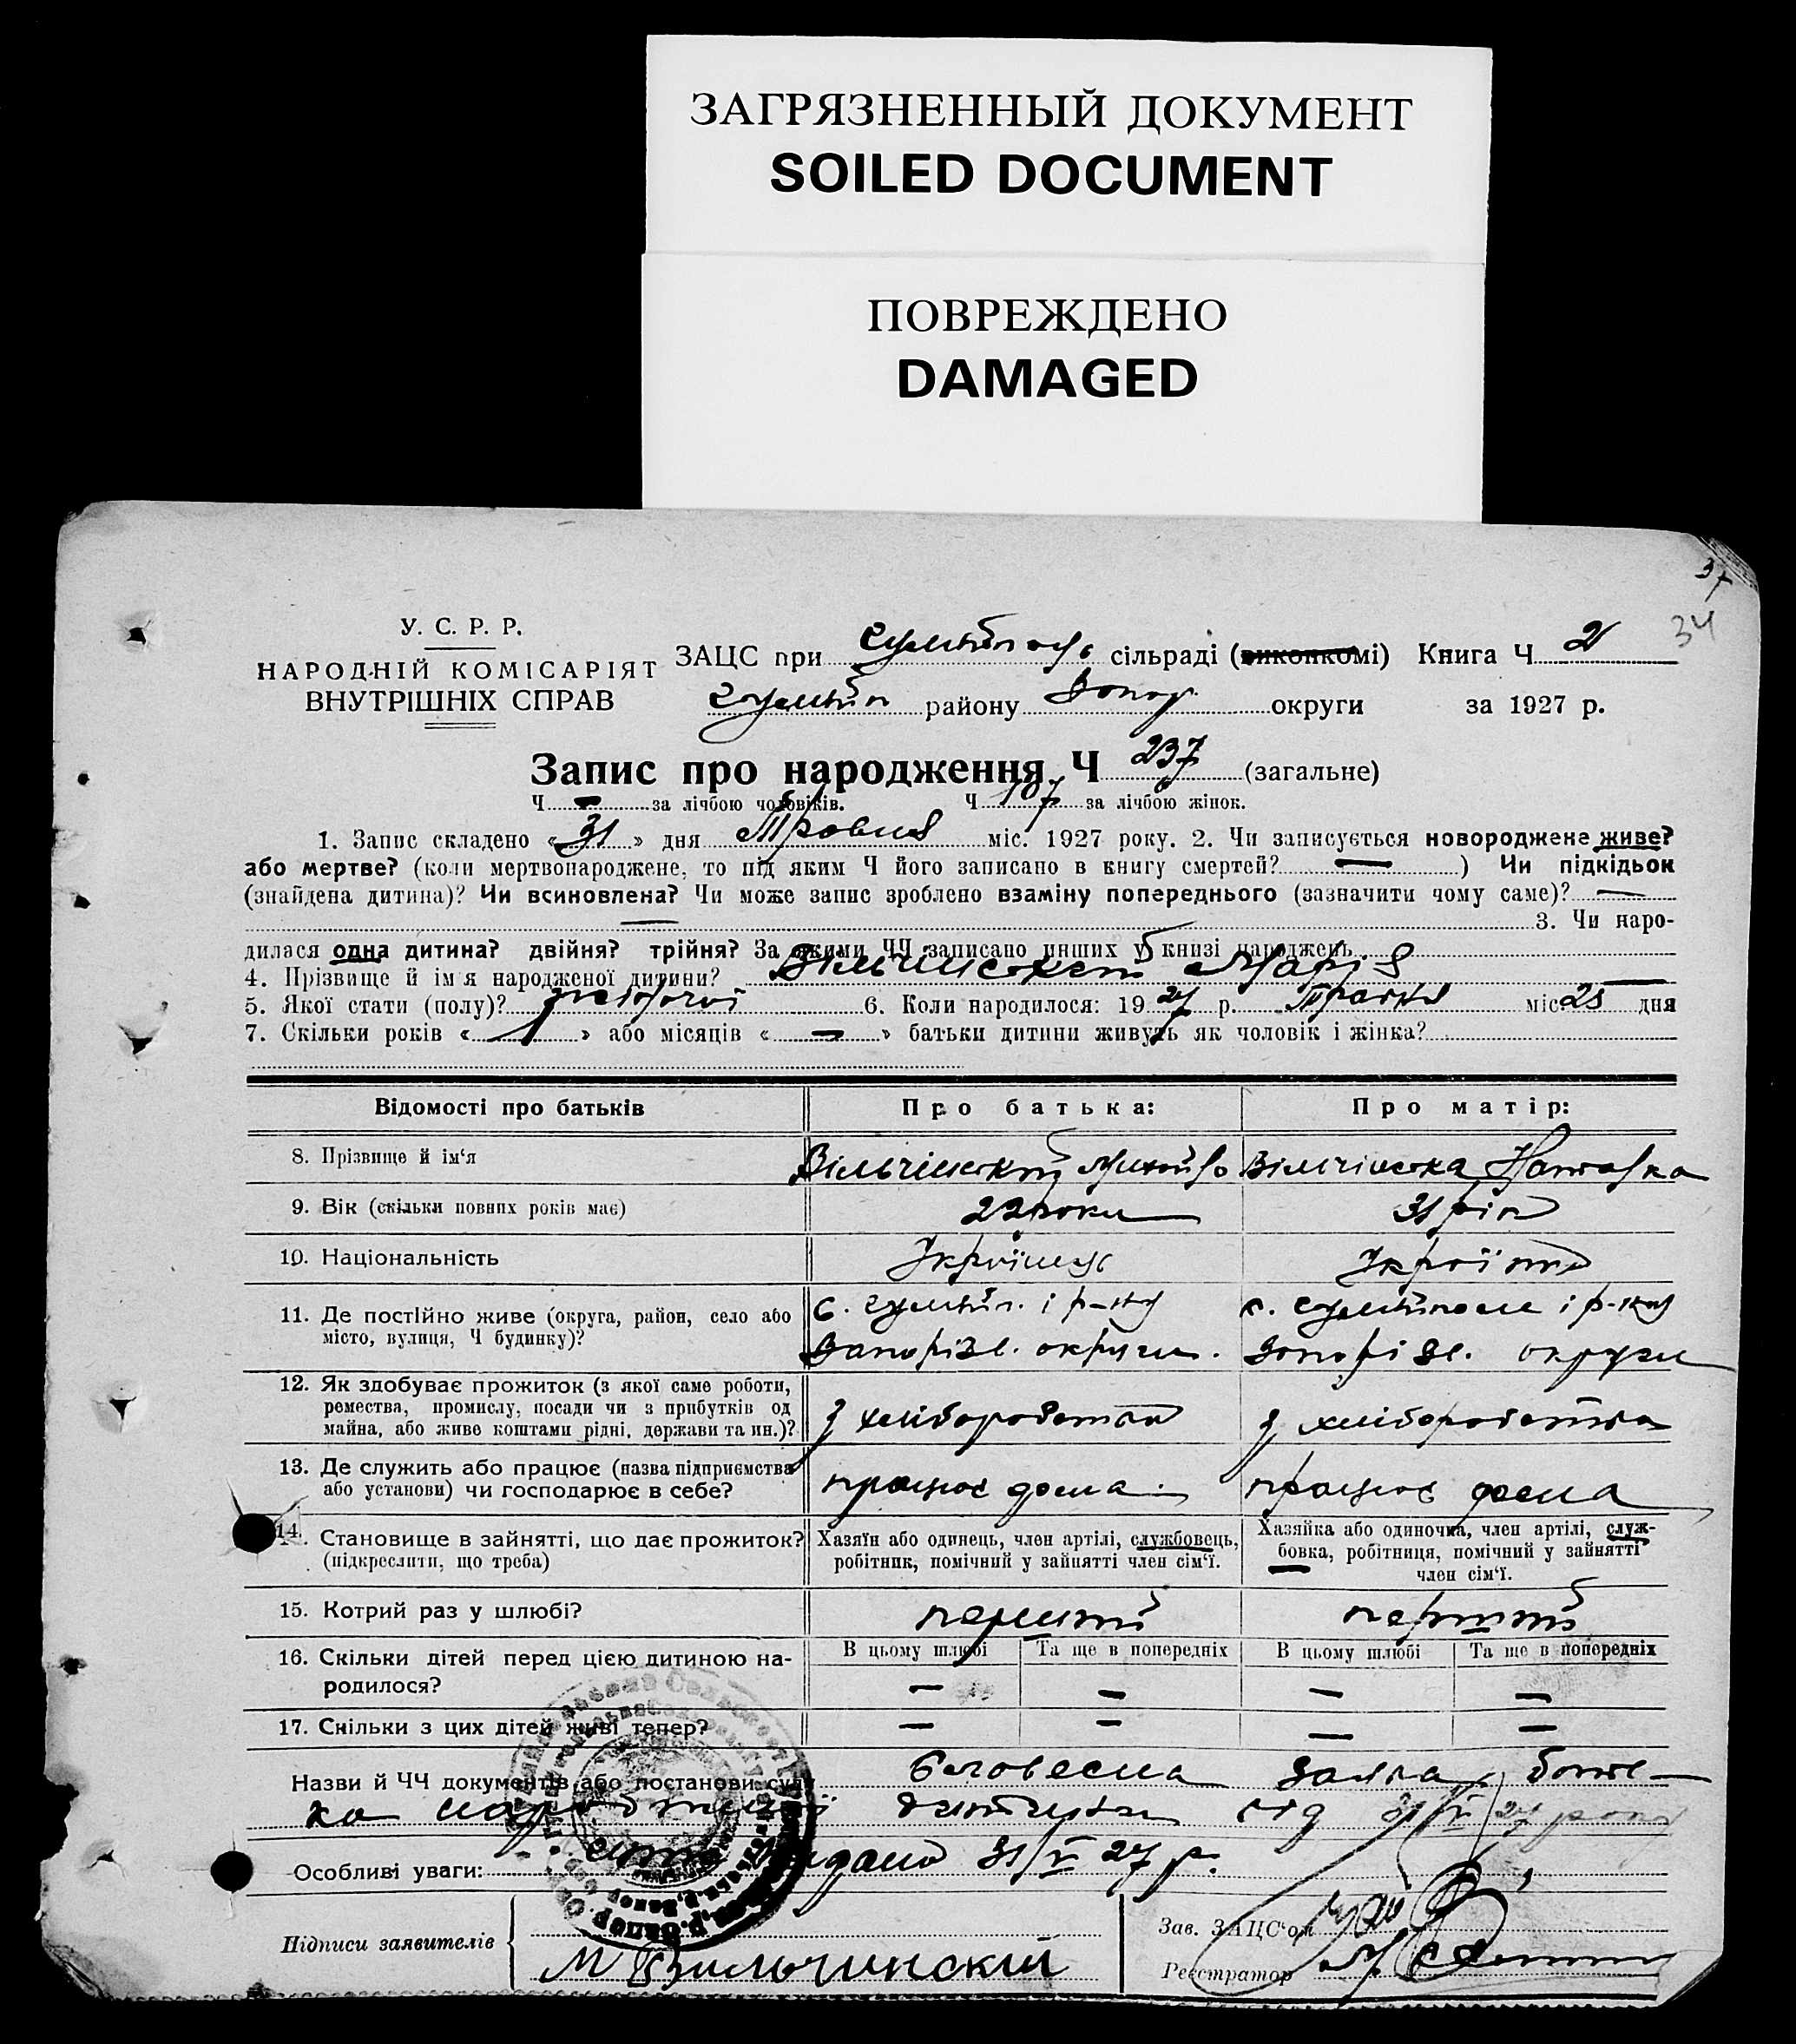 ЗАГРЯЗНЕННЫЙ ДОКУМЕНТ
SOILED DOCUMENT
ПОВРЕЖДЕНО
DAMAGED
37
34
У. С. Р. Р.
НАРОДНІЙ КОМІСАРІЯТ
ВНУТРІШНІХ СПРАВ
ЗАЦС при сільраді (виконкомі) Книга Ч 2
району Запор. округи за 1927 р.
Запис про народження Ч 237 (загальне)
Ч — за лічбою чоловіків. Ч 107 за лічбою жінок.
1. Запис складено «31» дня Травня міс. 1927 року. 2. Чи записується новороджене живе?
або мертве? (коли мертвонароджене, то під яким Ч його записано в книгу смертей? — ) Чи підкідьок
(знайдена дитина)? Чи всиновлена? Чи може запис зроблено взаміну попереднього (зазначити чому саме)? —
— 3. Чи наро-
дилася одна дитина? двійня? трійня? За якими ЧЧ записано инших у книзі народжень
4. Прізвище й ім'я народженої дитини? Марія
5. Якої стати (полу)? жіночої 6. Коли народилося: 1927 р. Травня міс. 25 дня
7. Скільки років « 1 » або місяців « — » батьки дитини живуть як чоловік і жінка?
Відомості про батьків Про батька: Про матір:
8. Прізвище й ім'я Вільчінський Михайло Вільчінська Наталка
9. Вік (скільки повних років має) 22 роки 31 рік
10. Національність Українець Українка
11. Де постійно живе (округа, район, село або місто, вулиця, Ч будинку)?
с. і р-ну с. і р-ну
Запорізь. округи. Запорізь. округи
12. Як здобуває прожиток (з якої саме роботи,
ремества, промислу, посади чи з прибутків од
майна, або живе коштами рідні, держави та ин.)? З хліборобства З хліборобства
13. Де служить або працює (назва підприємства
або установи) чи господарює в себе? працює дома працює дома
14. Становище в зайнятті, що дає прожиток?
(підкреслити, що треба)
Хазяїн або одинець, член артілі, службовець,
робітник, помічний у зайнятті член сім'ї.
Хазяйка або одиночка, член артілі, служ-
бовка, робітниця, помічний у зайнятті
член сім'ї.
15. Котрий раз у шлюбі? перший перший
16. Скільки дітей перед цією дитиною на-
родилося?
В цьому шлюбі Та ще в попередніх В цьому шлюбі Та ще в попередніх
— — — —
17. Скільки з цих дітей живі тепер? — — — —
Назви й ЧЧ документів або постанови суду Словесна заява бать-
ка народженої дитини від 31/V 27 року
Особливі уваги: видано 31/V 27 р.
Підписи заявителів
М Вильчинский
Зав. ЗАЦС'ом
Реєстратор